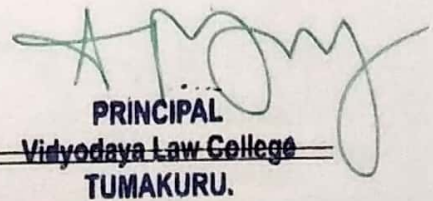 PRINCIPAL
Vidyodaya Law College
TUMAKURU.